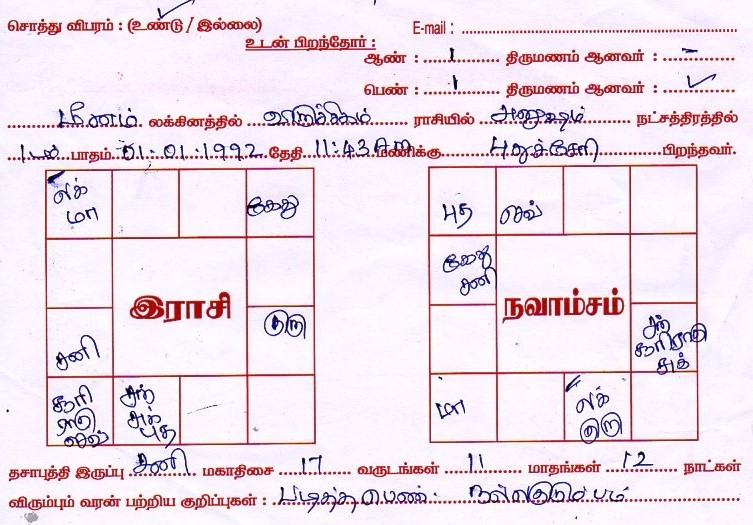 சொத்து விபரம் : (உண்டு / இல்லை) E-mail :
உடன் பிறந்தோர் :
ஆண் : 1 திருமணம் ஆனவர் : –
பெண் : 1 திருமணம் ஆனவர் : ✓
மீனம் லக்கினத்தில் விருச்சிகம் ராசியில் அனுஷம் நட்சத்திரத்தில்
1ம் பாதம் 01.01.1992 தேதி 11:43 AM மணிக்கு புதுச்சேரி பிறந்தவர்.
லக் மா கேது
இராசி
குரு
சனி
சூரி ராகு செவ் சந் சுக் புத
புத செவ்
கேது சனி
நவாம்சம்
சந் சூரி ராகு சுக்
மா லக் குரு
தசாபுத்தி இருப்பு சனி மகாதிசை 17 வருடங்கள் 11 மாதங்கள் 12 நாட்கள்
விரும்பும் வரன் பற்றிய குறிப்புகள் : படித்த பெண். நல்ல குடும்பம்